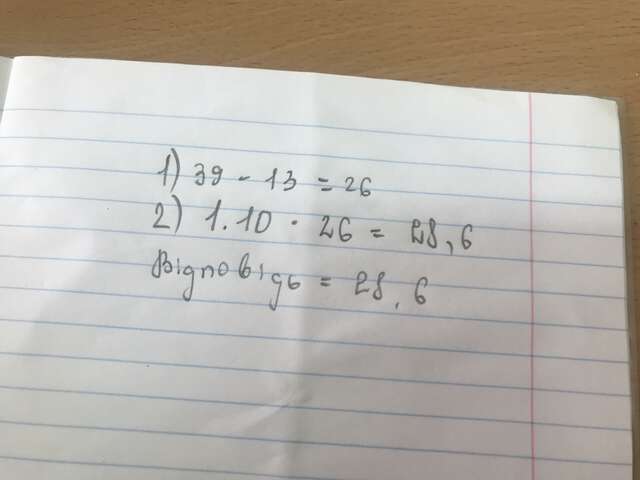 1) 39 - 13 = 26
2) 1.10 · 26 = 28,6
Відповідь = 28,6